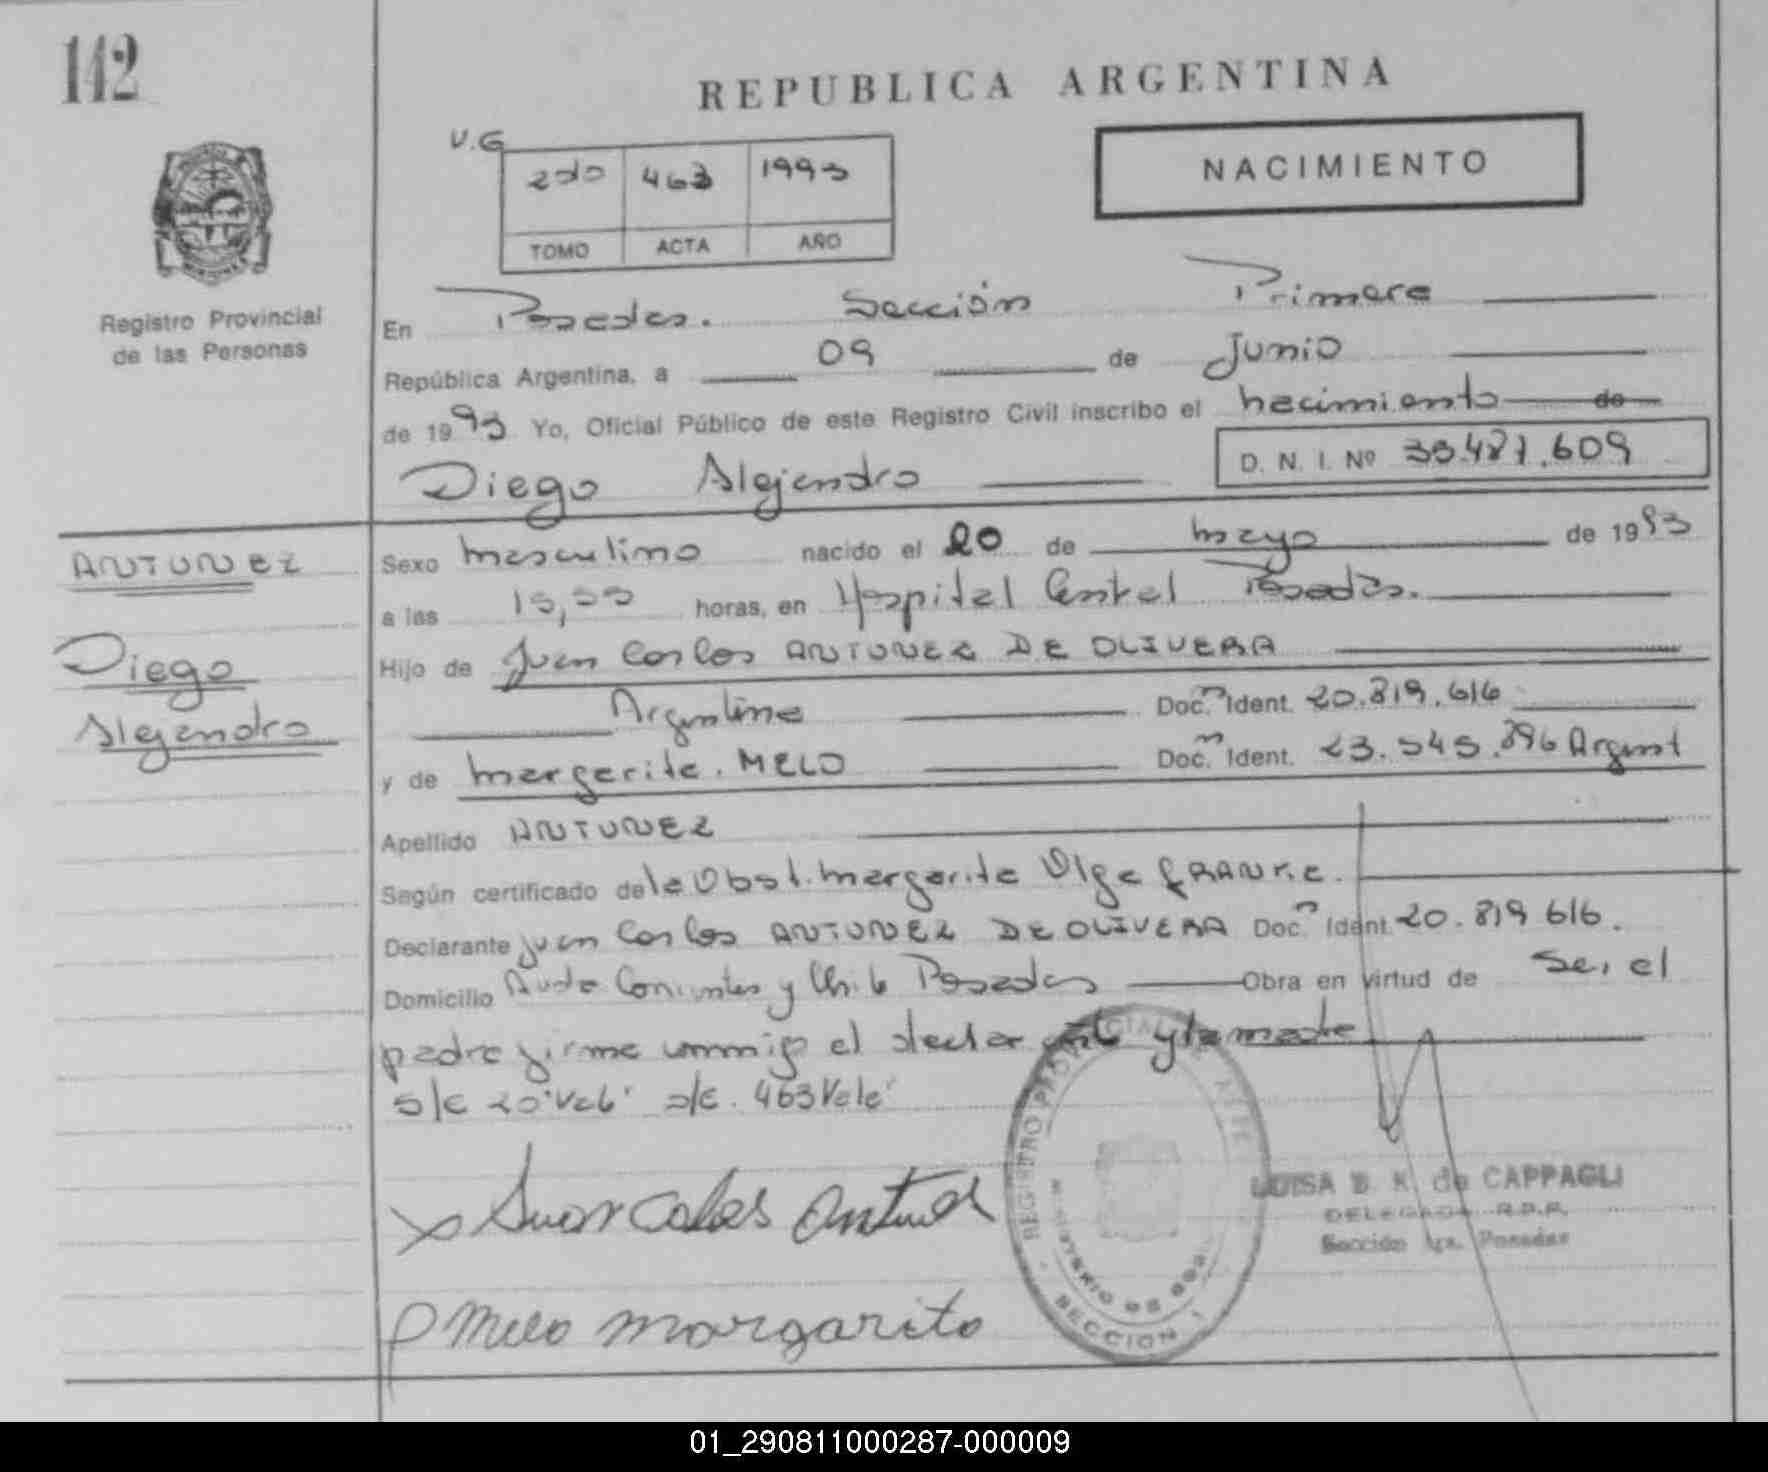 142
REPUBLICA ARGENTINA
NACIMIENTO
V.G
2do 463 1993
TOMO ACTA AÑO
Registro Provincial
de las Personas
En Posadas. Sección Primera
República Argentina, a 09 de Junio
de 1993 Yo, Oficial Público de este Registro Civil inscribo el nacimiento de
D. N. I. Nº 33.487.609
Diego Alejandro
ANTUNEZ
Diego
Alejandro
Sexo masculino nacido el 20 de mayo de 1993
a las horas, en Hospital Central Posadas.
Hijo de Juan Carlos ANTUNEZ DE OLIVERA
Argentino Doc. n Ident. 20.819.616
y de Margarita. MELO Doc. n Ident. 23.545.396 Argent
Apellido ANTUNEZ
Según certificado de la Obst. Margarita Olga FRANKE.
Declarante Juan Carlos ANTUNEZ DE OLIVERA Doc. n Ident. 20.819 616.
Domicilio Avda Corrientes y Chile Posadas Obra en virtud de Ser el
padre firma conmigo el declarante y la madre
s/c 20 "Vale" s/c. 463 Vale
Juan Carlos Antunes
Melo Margarita
REGISTRO PROVINCIAL
MINISTERIO DE GOB
SECCION 1
LUISA B. K. de CAPPAGLI
DELEGADA R.P.P.
Sección 1ra. Posadas
01_290811000287-000009